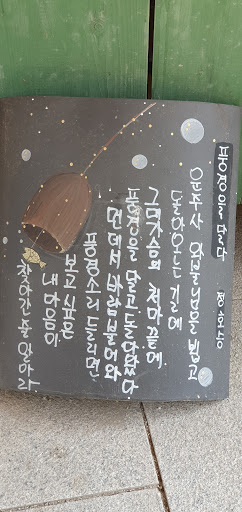 풍경을 달다 정호승
운주사 와불님을 뵙고
돌아오는 길에
그대가슴의 처마 끝에
풍경을 달고 돌아왔다
먼데서 바람 불어와
풍경소리 들리면
보고 싶은
내 마음이
찾아간 줄 알아라